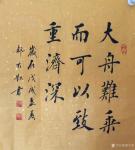 大舟難乘
而可以致
重濟深
歲在戊戌立夏